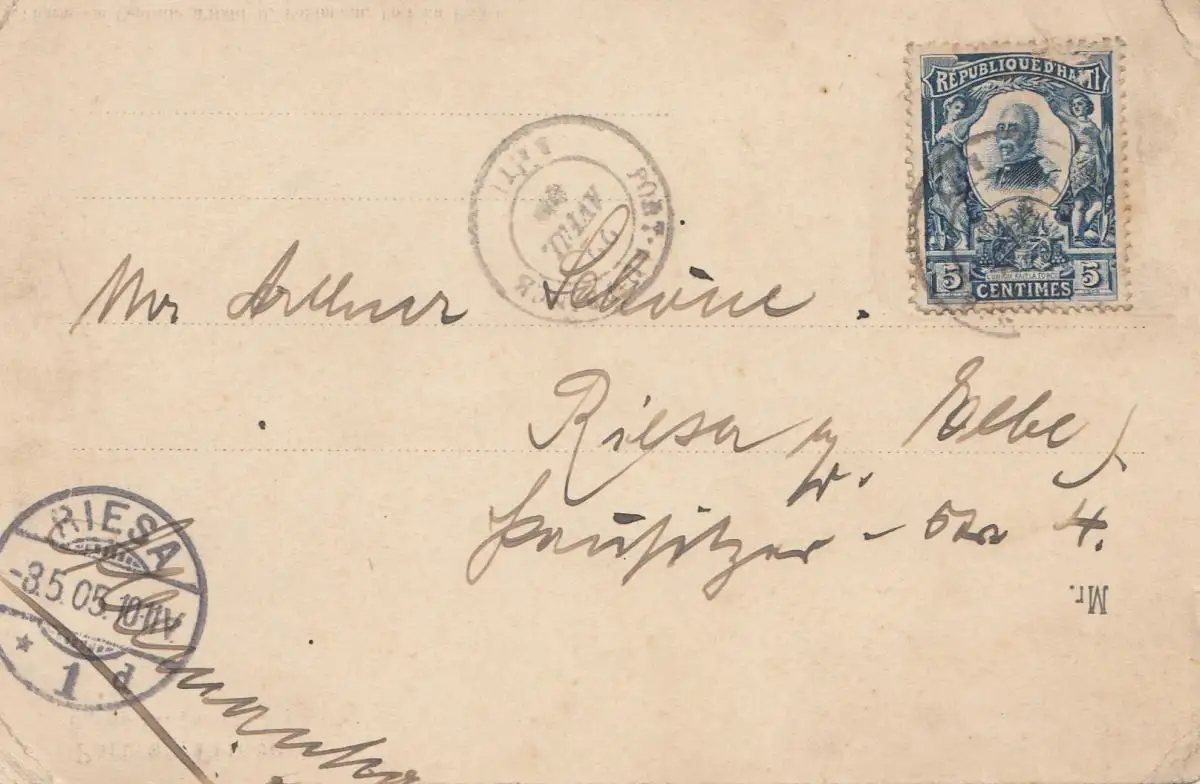 RÉPUBLIQUE D'HAITI
L'UNION FAIT LA FORCE
5 CENTIMES 5
PORT-AU-PRINCE
HAITI
AVRIL
Mr Arthur Schöne.
Riesa a/ Elbe
Pausitzer-Str 4.
Mr.
RIESA
-3.5.05. 10-11V.
* 1 d
Allemanha